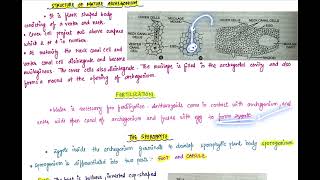 STRUCTURE OF MATURE ARCHEGONIUM
→ It is flask shaped body
consisting of a venter and neck.
• Cover cell project out above surface
which is 4 in number.
• At maturity the neck canal cell and
ventral canal cell disintegrate and become
mucilaginous. The cover cells also disintegrate. The mucilage is filled in the archegonial cavity and also
forms a mound at the opening of archegonium.
COVER CELLS
MUCILAGE
COVER CELLS
NECK CANAL CELLS
FERTILIZATION
• Water is necessary for fertilization. Antherozoids come in contact with archegonium, and
enter into them canal of archegonium and fuses with egg to form zygote.
THE SPOROPHYTE
• Zygote inside the archegonium germinate to develop sporophytic plant body sporogonium
• Sporogonium is differentiated into two parts - FOOT and CAPSULE.
The foot is bulbous, inverted cup-shaped